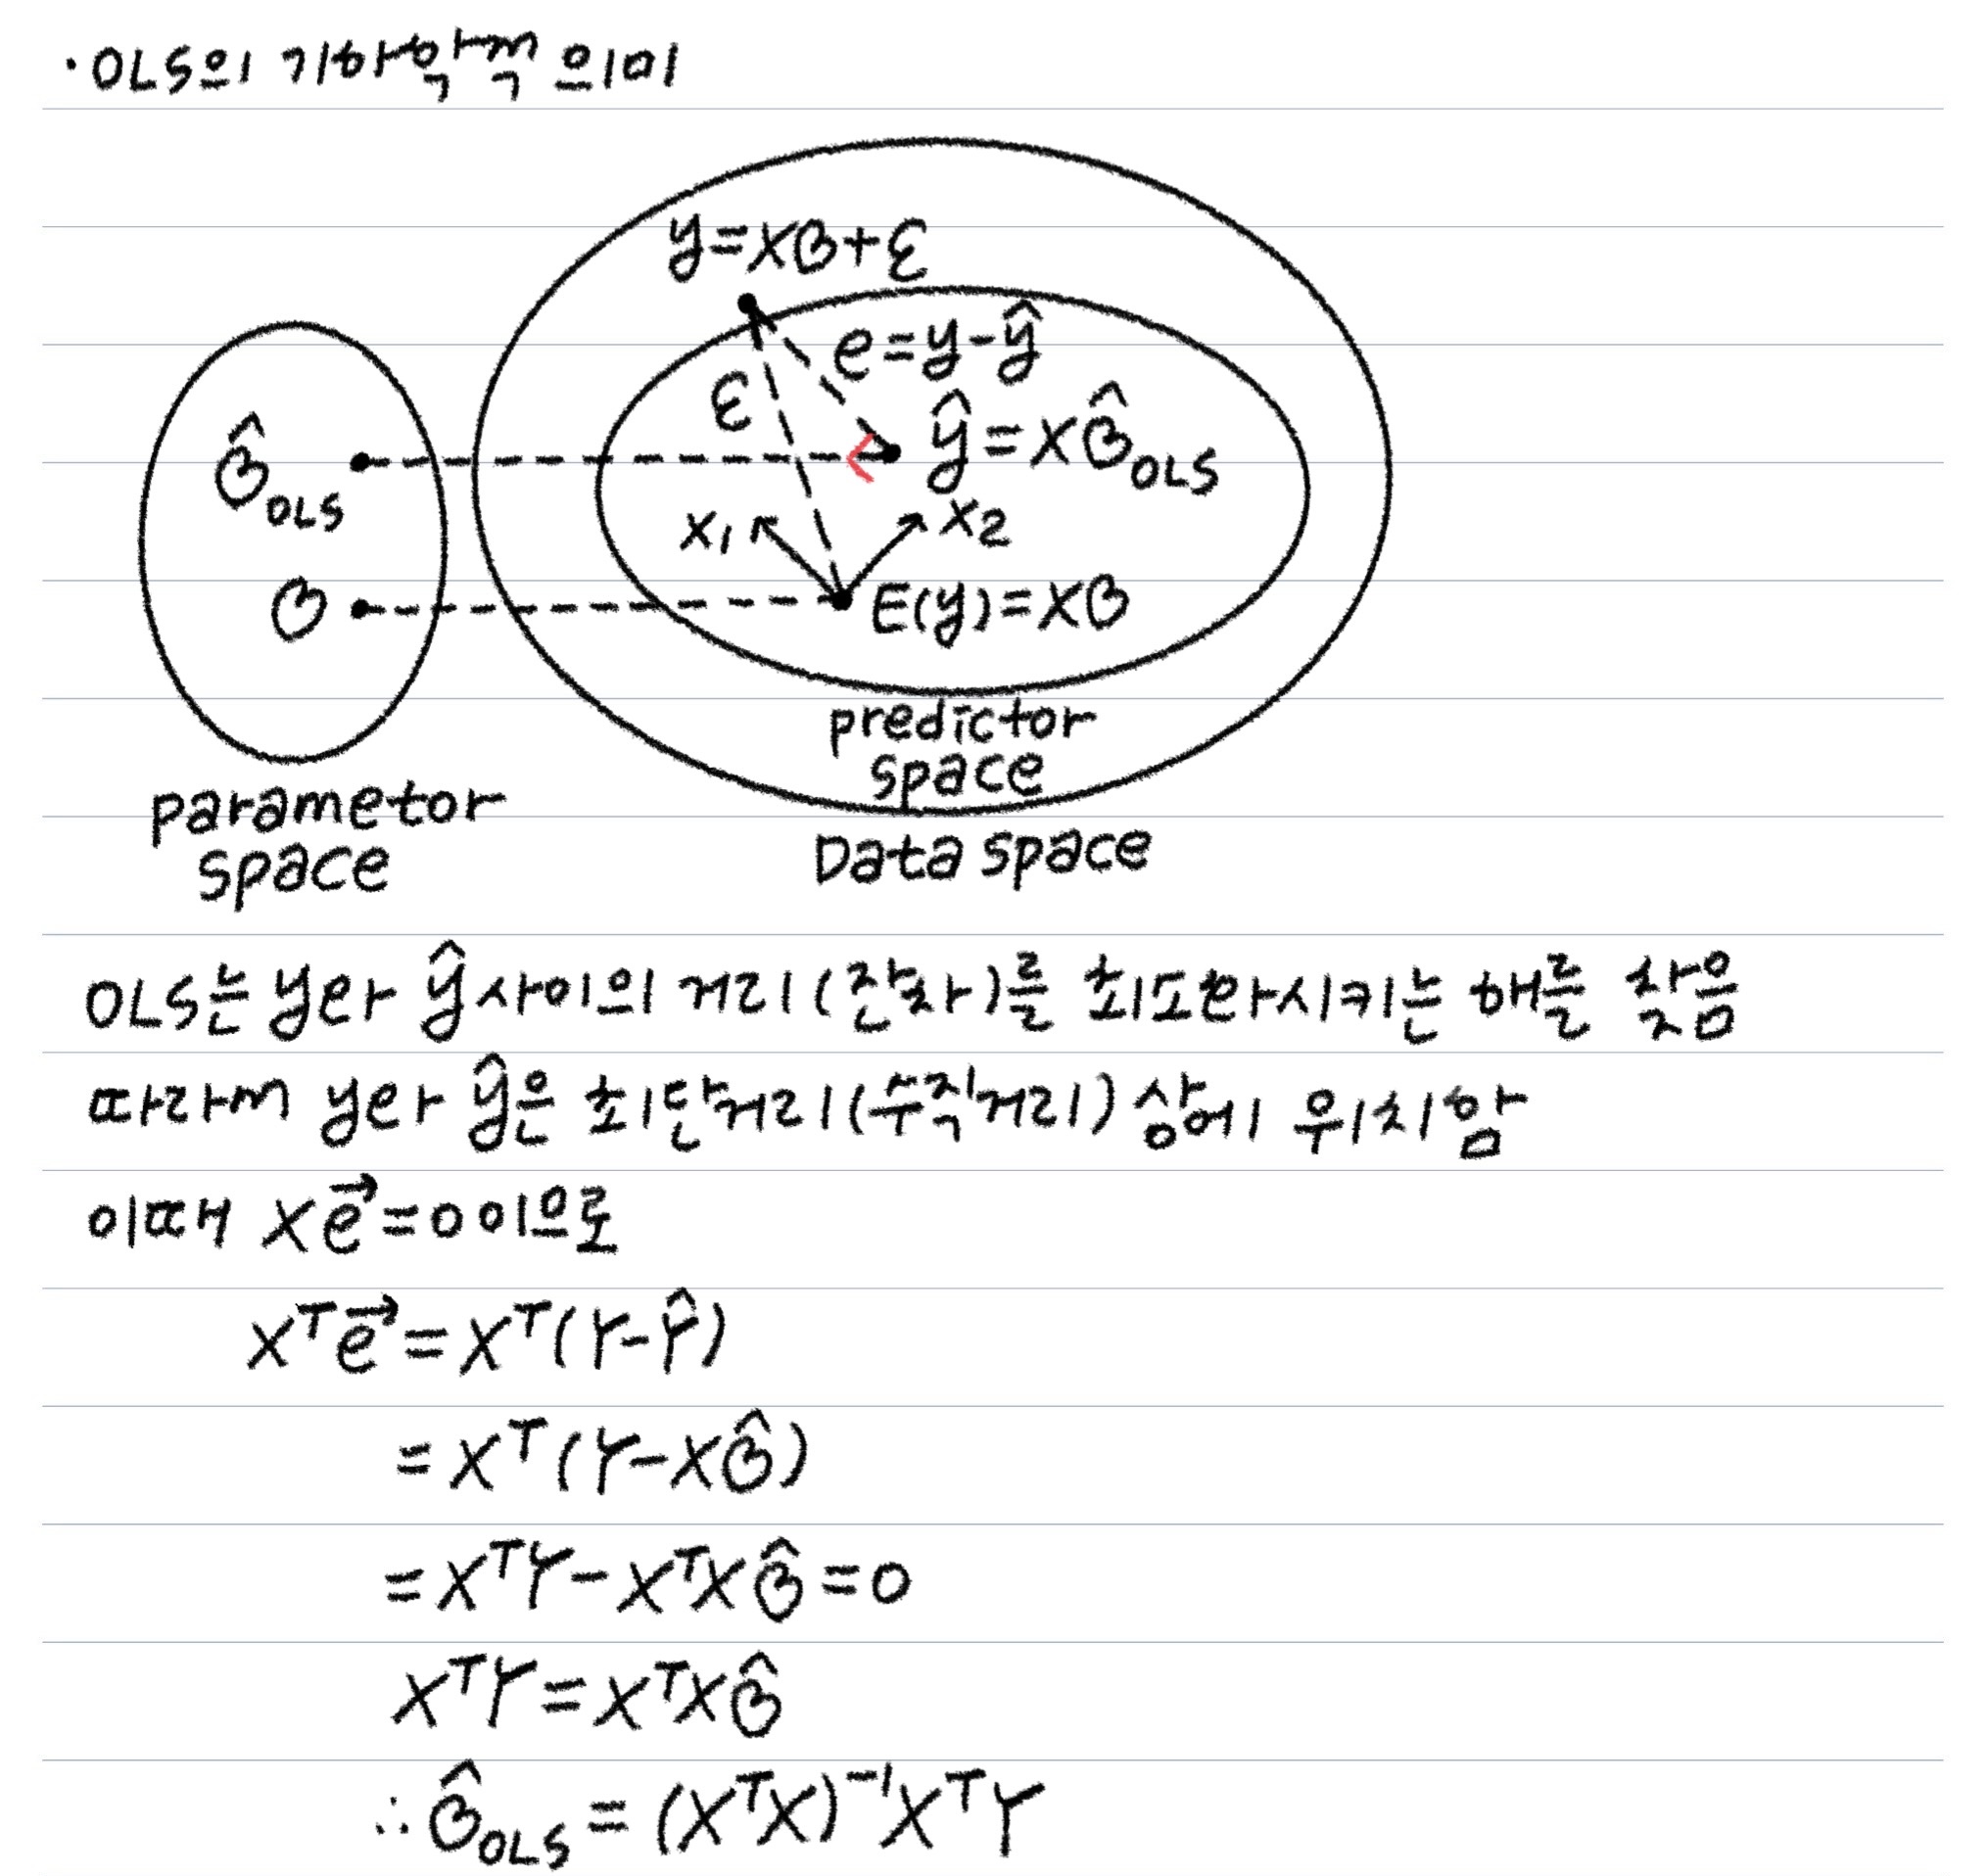 ·OLS의 기하학적 의미
y=Xβ+ε
e=y-ŷ
ε
ŷ=Xβ̂OLS
β̂OLS
x₁
x₂
β
E(y)=Xβ
predictor
space
parametor
space
Data space
OLS는 y와 ŷ사이의 거리(잔차)를 최소화시키는 해를 찾음
따라서 y와 ŷ은 최단거리(수직거리) 상에 위치함
이때 Xe⃗=0 이으로
Xᵀe⃗=Xᵀ(Y-Ŷ)
=Xᵀ(Y-Xβ̂)
=XᵀY-XᵀXβ̂=0
XᵀY=XᵀXβ̂
∴β̂OLS=(XᵀX)⁻¹XᵀY